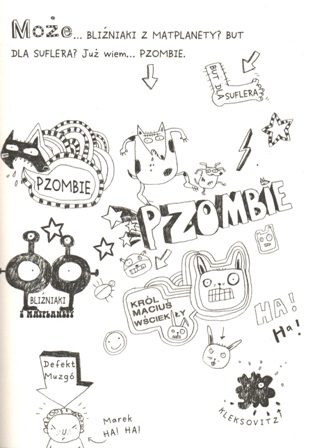 Może... BLIŹNIAKI Z MATPLANETY? BUT
DLA SUFLERA? Już wiem... PZOMBIE.
BUT DLA
SUFLERA
PZOMBIE
PZOMBIE
BLIŹNIAKI
Z MATPLANETY
KRÓL
MACIUŚ
WŚCIEKŁY
HA!
Ha!
Defekt
Muzgó
Marek
HA! HA!
KLEKSOVITZ